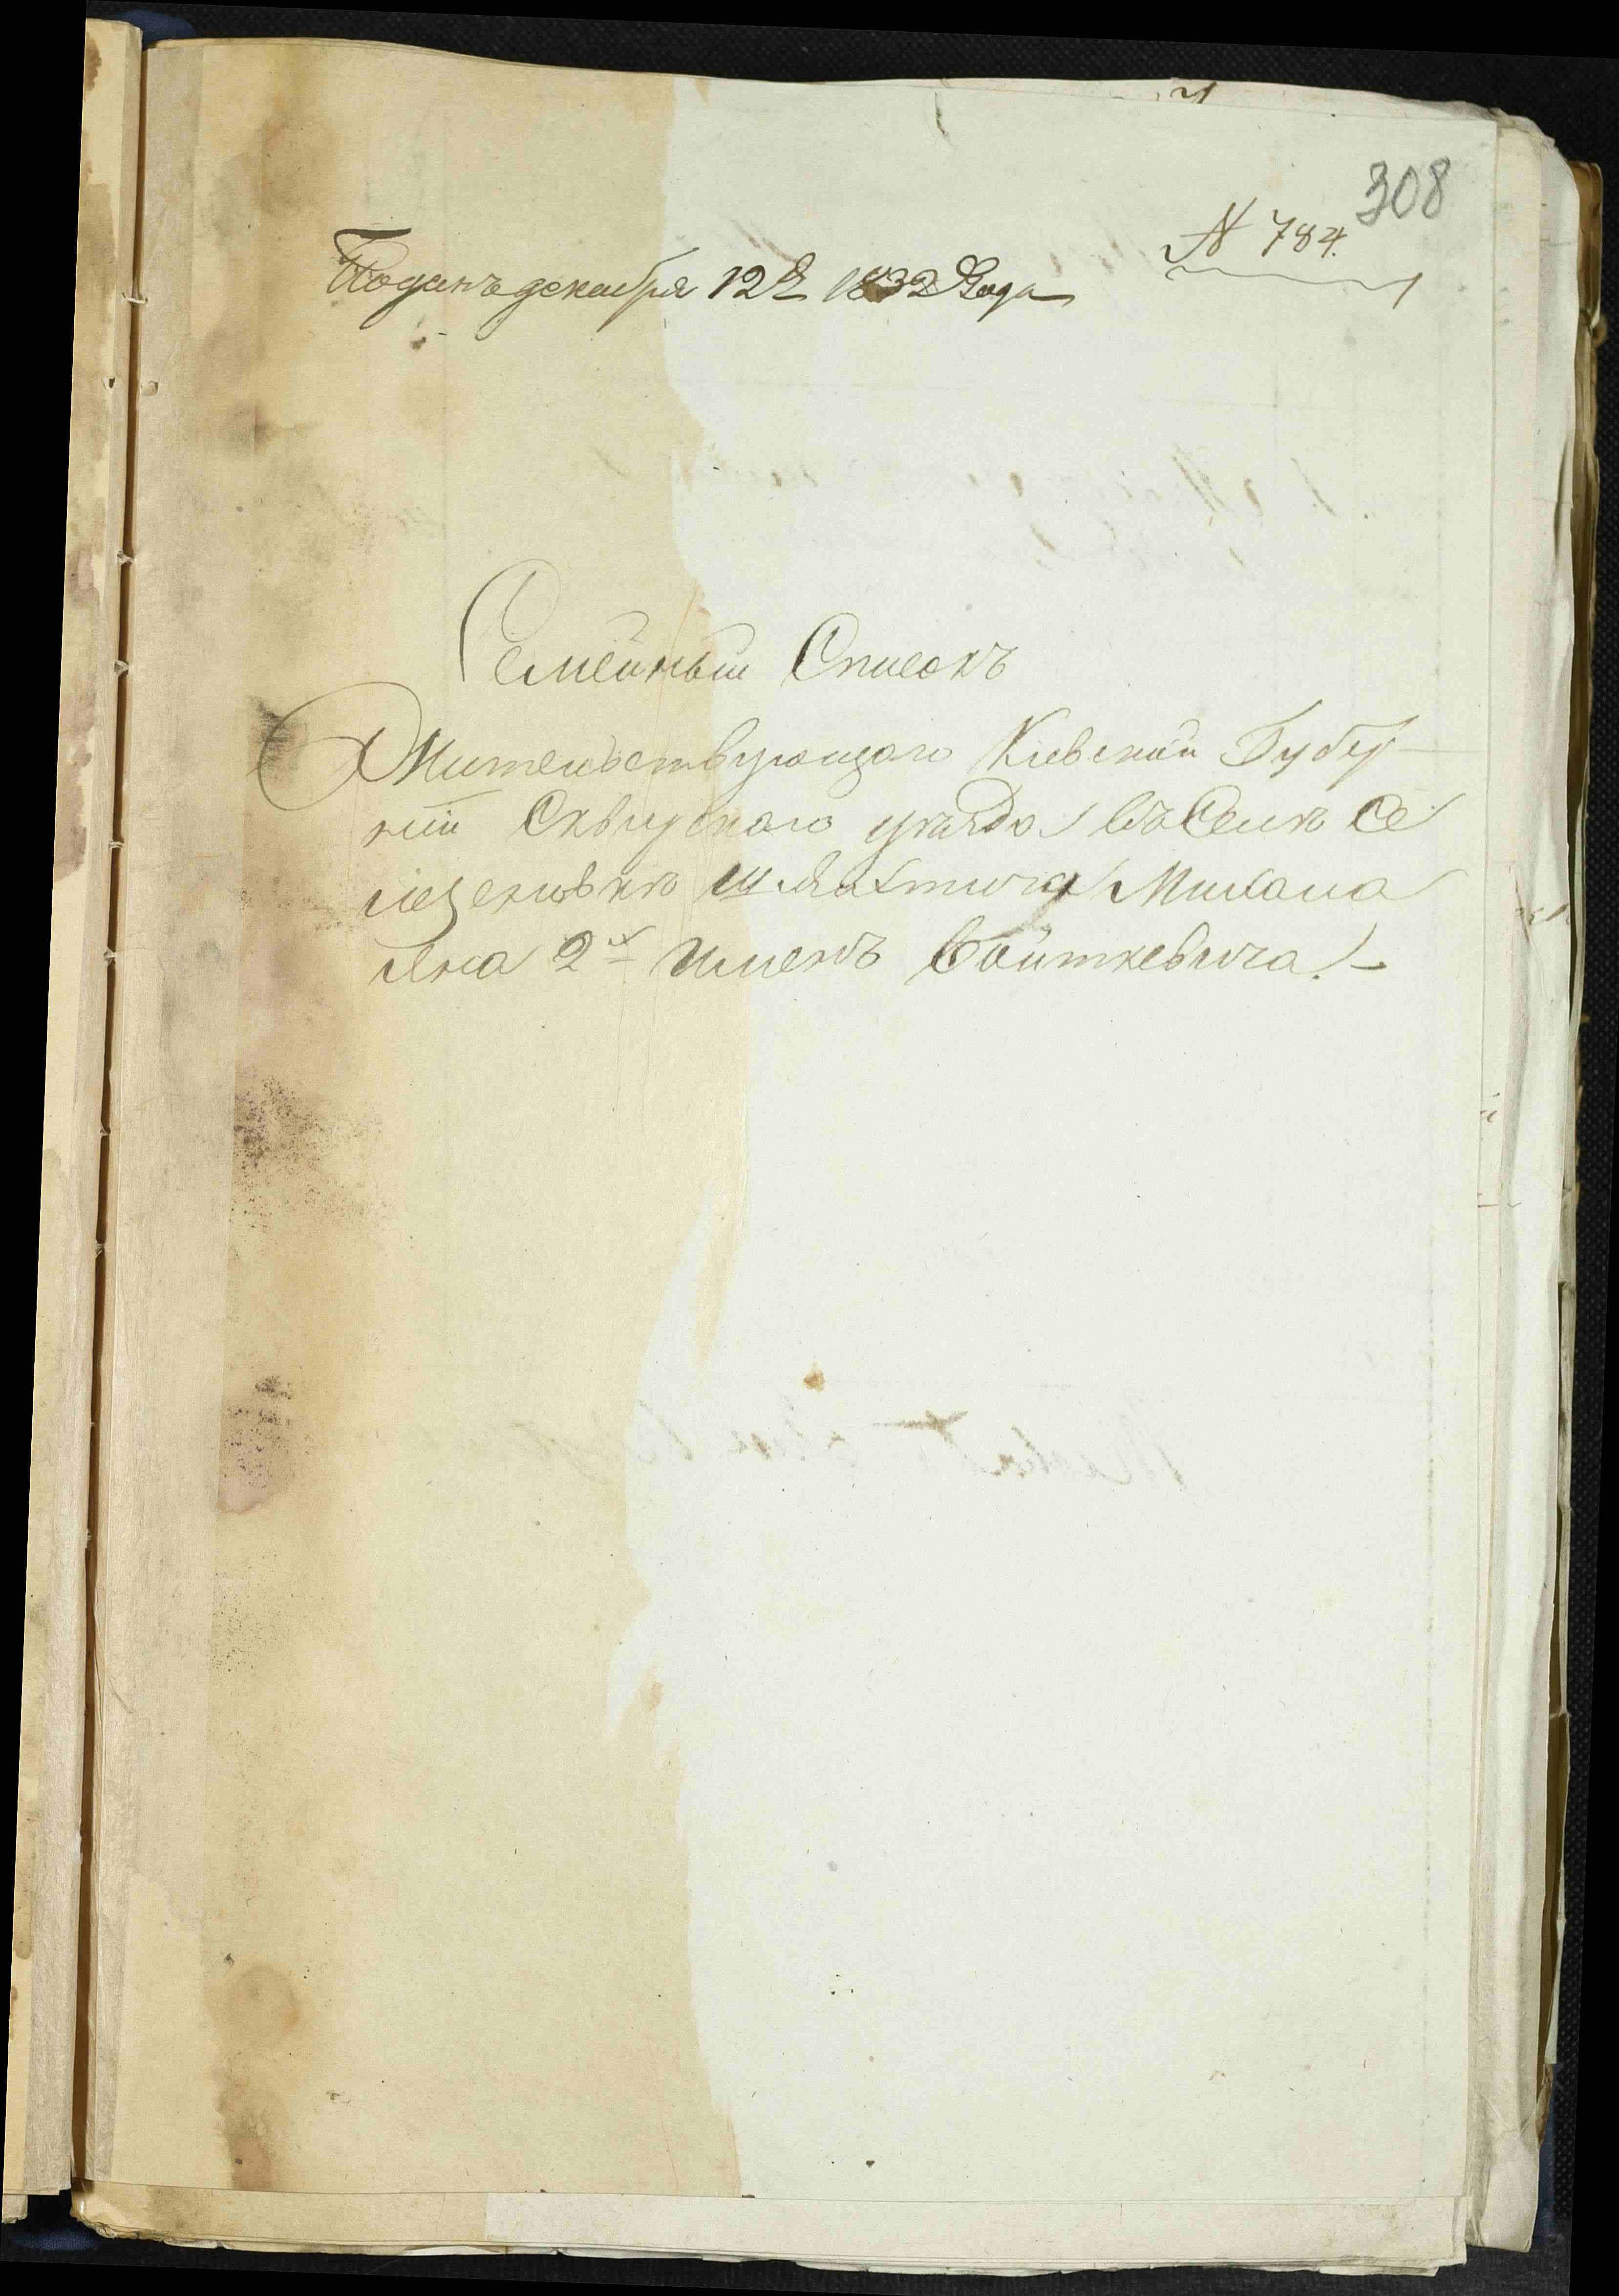 308
N 784.
Поданъ декабря 12 д 1832 Года
Семейный Списокъ
Жительствующаго Кіевской Губер-
ніи Сквирскаго уѣзда въ Селѣ Се
мѣзеновкѣ шляхтича Михала
Яна 2хъ именъ Войткевича. -